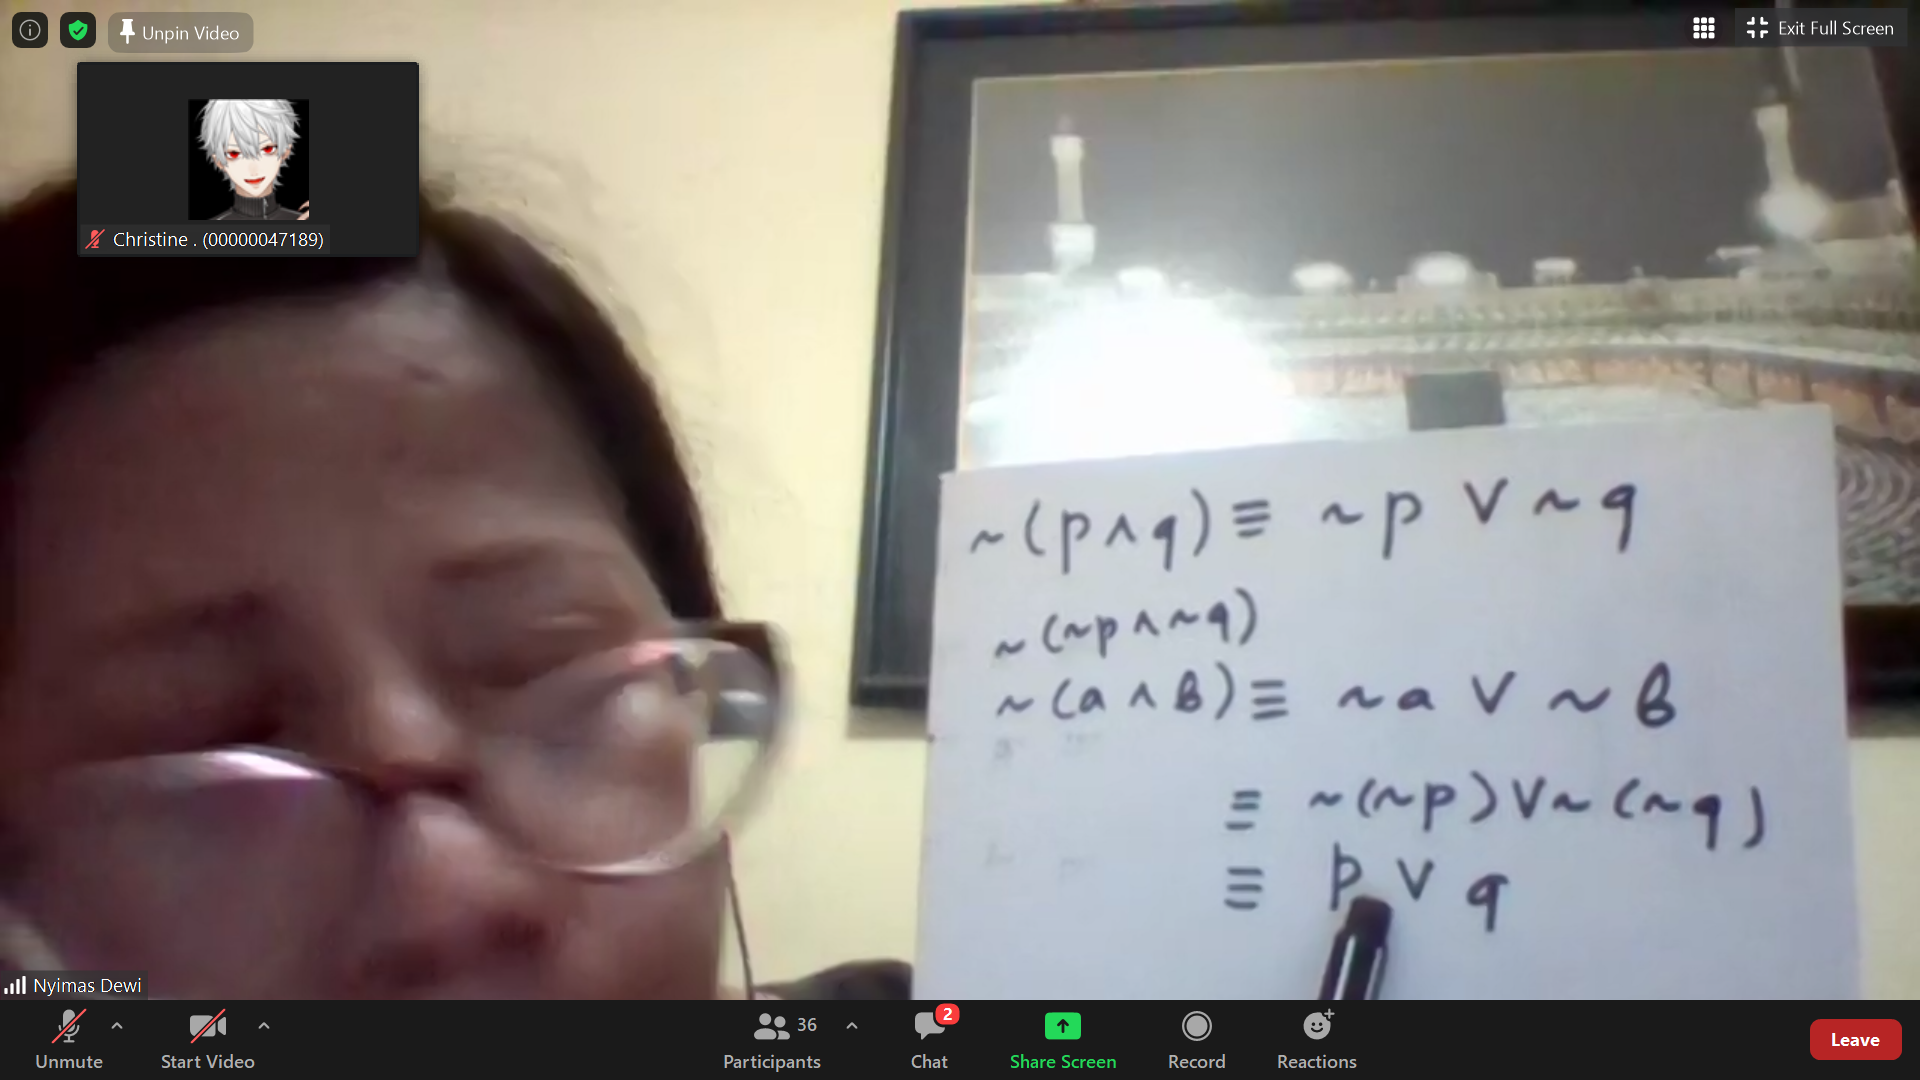 Unpin Video
Exit Full Screen
Christine . (00000047189)
~(p∧q)≡ ~p ∨ ~q
~(~p∧~q)
~(a∧b)≡ ~a ∨ ~b
≡ ~(~p)∨~(~q)
≡ p ∨ q
Nyimas Dewi
Unmute
Start Video
36
Participants
2
Chat
Share Screen
Record
Reactions
Leave